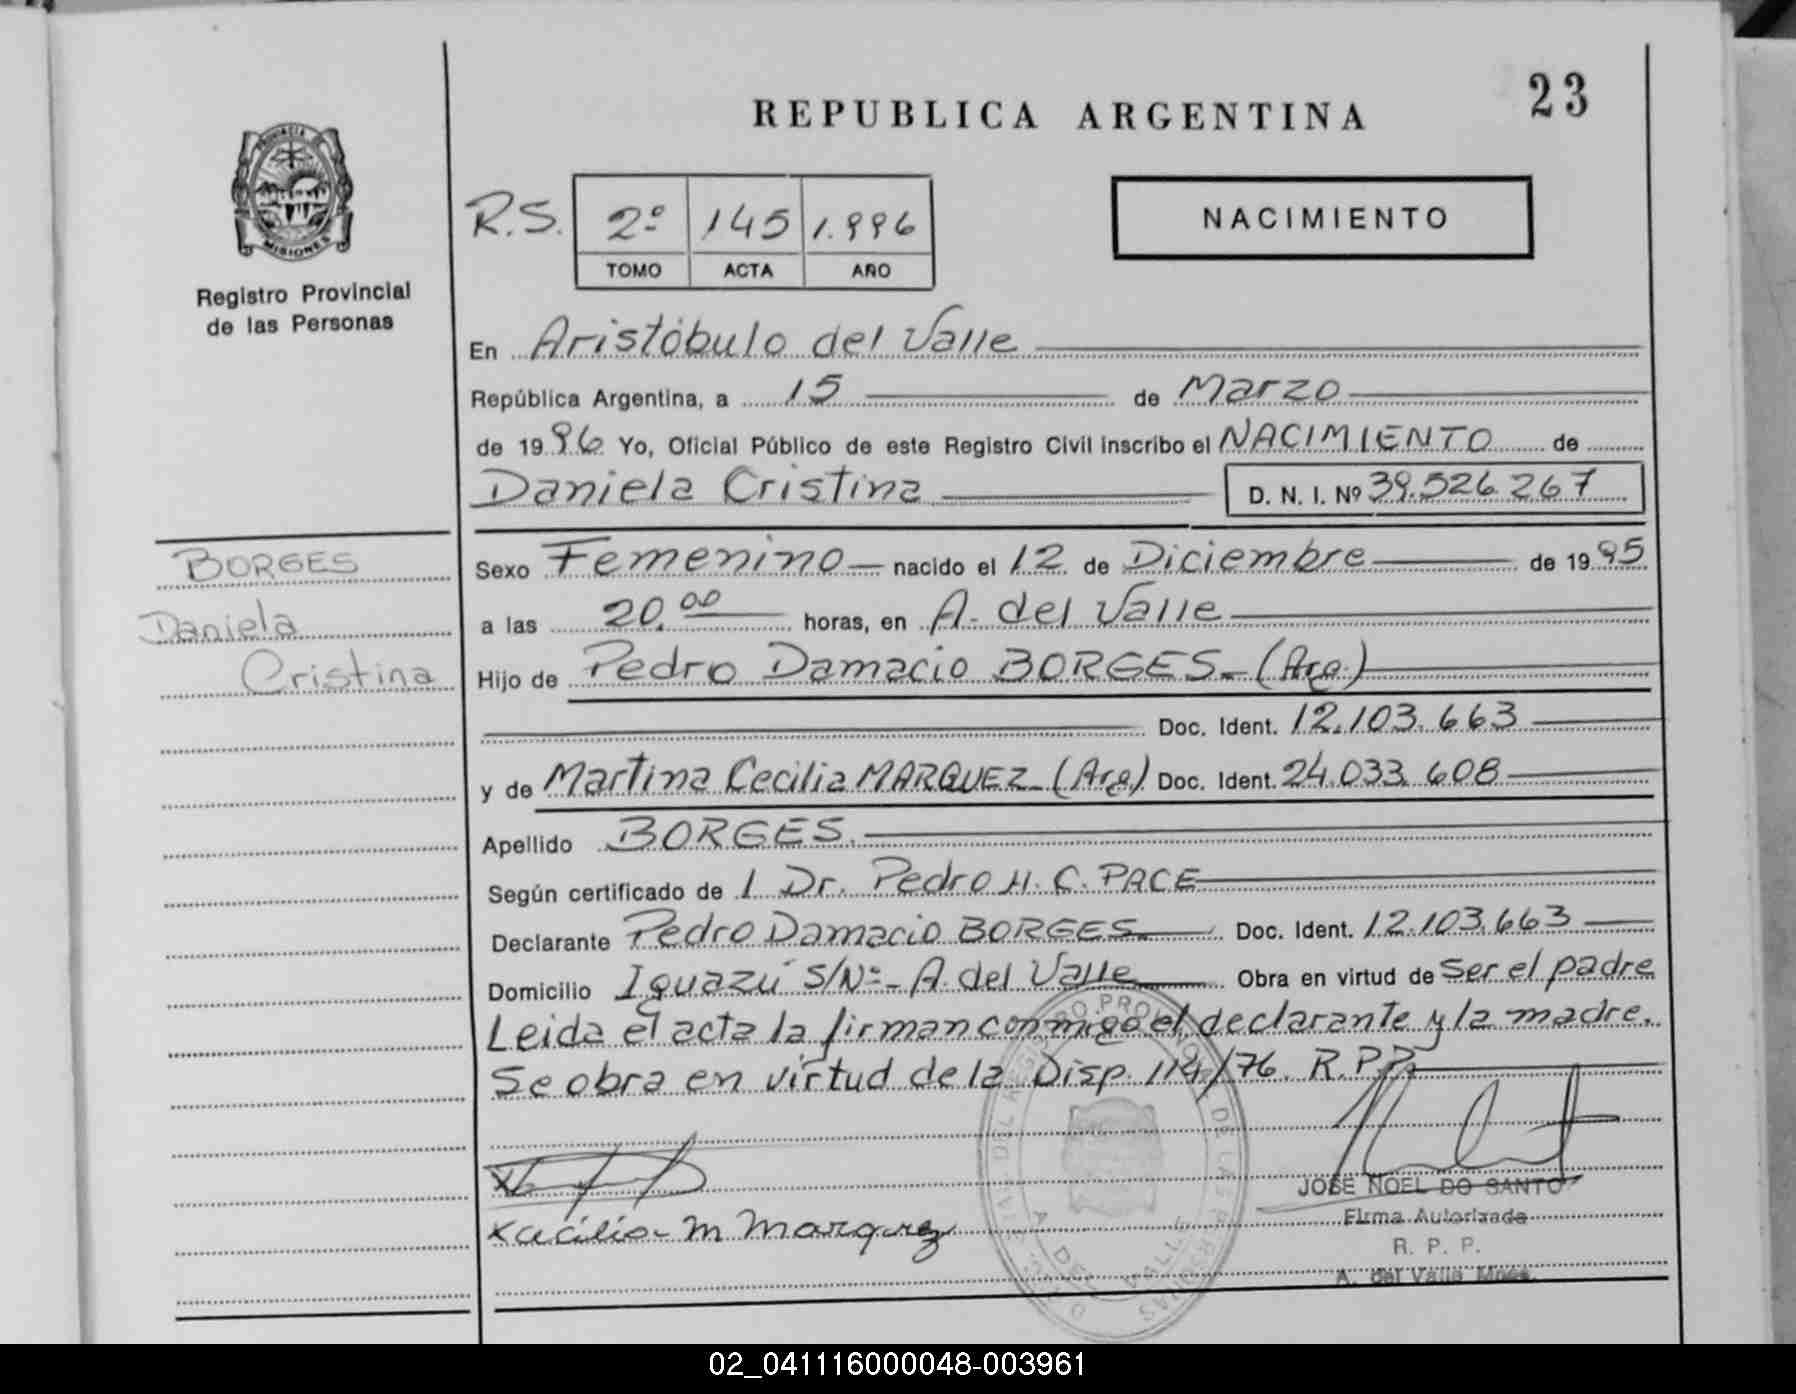 23
REPUBLICA ARGENTINA
PROVINCIA
MISIONES
Registro Provincial
de las Personas
R.S. 2º 145 1.996
TOMO ACTA AÑO
NACIMIENTO
En Aristóbulo del Valle
República Argentina, a 15 de Marzo
de 1996 Yo, Oficial Público de este Registro Civil inscribo el NACIMIENTO de
Daniela Cristina D. N. I. Nº 39.526.267
BORGES
Daniela
Cristina
Sexo Femenino nacido el 12 de Diciembre de 1995
a las 20.00 horas, en A. del Valle
Hijo de Pedro Damacio BORGES.- (Arg.)
Doc. Ident. 12.103.663
y de Martina Cecilia MARQUEZ (Arg.) Doc. Ident. 24.033.608
Apellido BORGES.
Según certificado de 1 Dr. Pedro H. C. PACE
Declarante Pedro Damacio BORGES. Doc. Ident. 12.103.663
Domicilio Iguazú S/Nº- A. del Valle Obra en virtud de Ser el padre
Leida el acta la firman conmigo el declarante y la madre.
Se obra en virtud de la Disp. 114/76. R.P.P.
JOSE NOEL DO SANTO
Firma Autorizada
R. P. P.
A. del Valle Mnes.
M Marquez
A. DEL VALLE
02_041116000048-003961